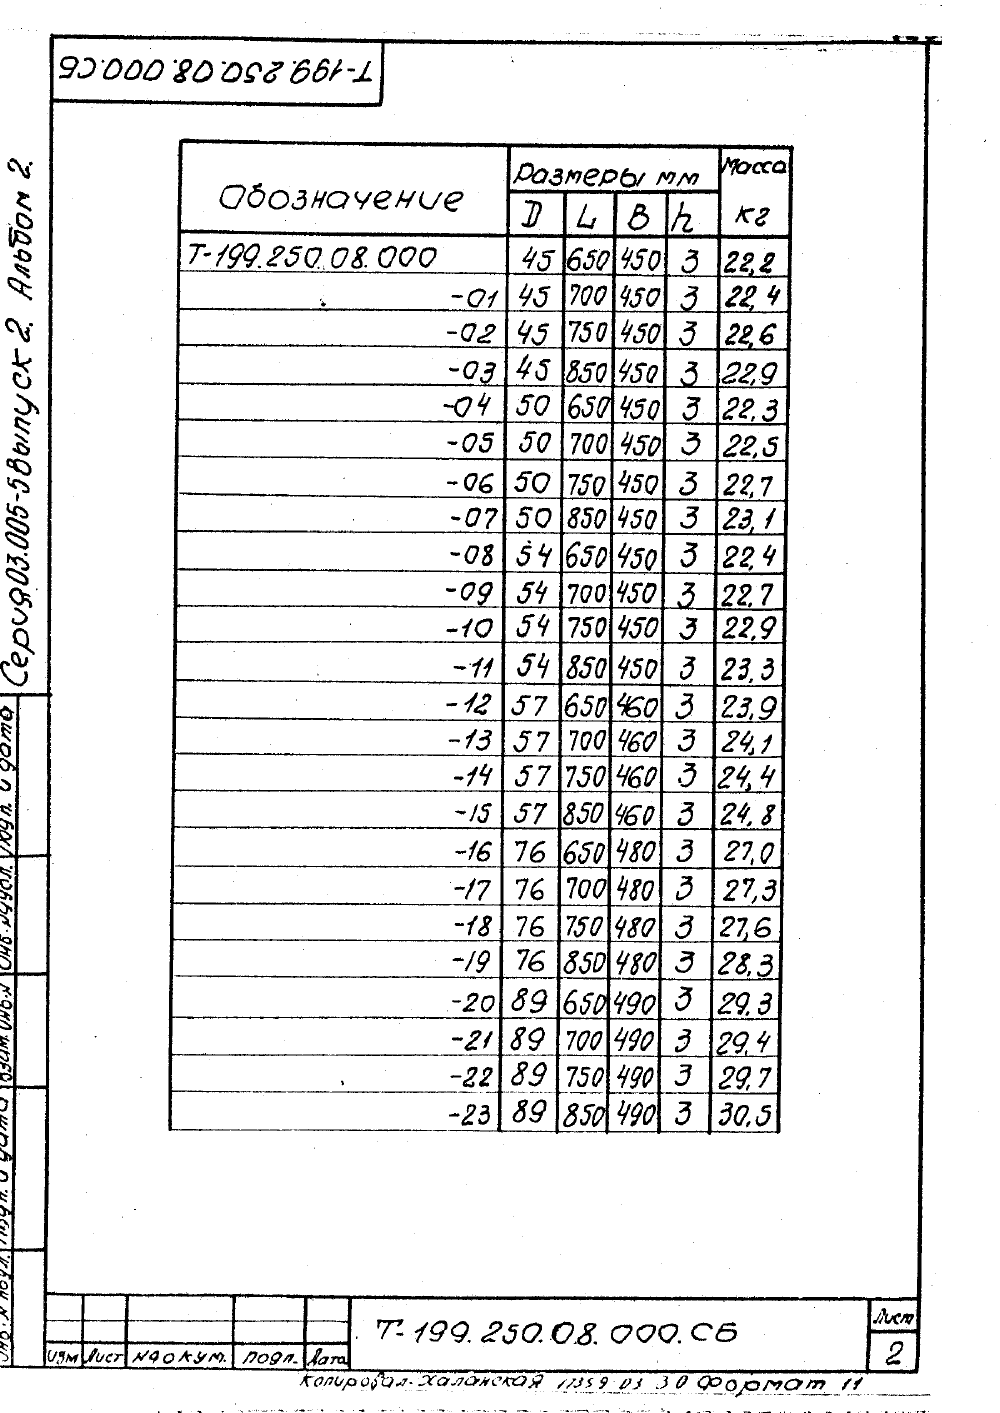 Т-199.250.08.000.СБ
Серия 03.005-5 Выпуск 2. Альбом 2.
Обозначение Размеры мм Масса кг
D L B h
Т-199.250.08.000 45 650 450 3 22,2
-01 45 700 450 3 22,4
-02 45 750 450 3 22,6
-03 45 850 450 3 22,9
-04 50 650 450 3 22,3
-05 50 700 450 3 22,5
-06 50 750 450 3 22,7
-07 50 850 450 3 23,1
-08 54 650 450 3 22,4
-09 54 700 450 3 22,7
-10 54 750 450 3 22,9
-11 54 850 450 3 23,3
-12 57 650 460 3 23,9
-13 57 700 460 3 24,1
-14 57 750 460 3 24,4
-15 57 850 460 3 24,8
-16 76 650 480 3 27,0
-17 76 700 480 3 27,3
-18 76 750 480 3 27,6
-19 76 850 480 3 28,3
-20 89 650 490 3 29,3
-21 89 700 490 3 29,4
-22 89 750 490 3 29,7
-23 89 850 490 3 30,5
Инв. N подл. Подп. и дата Взам. инв. N Инв. N дубл. Подп. и дата
Изм Лист N докум. Подп. Дата
Т-199.250.08.000.СБ
Лист
2
Копировал- Халанская 17359 03 30 Формат 11